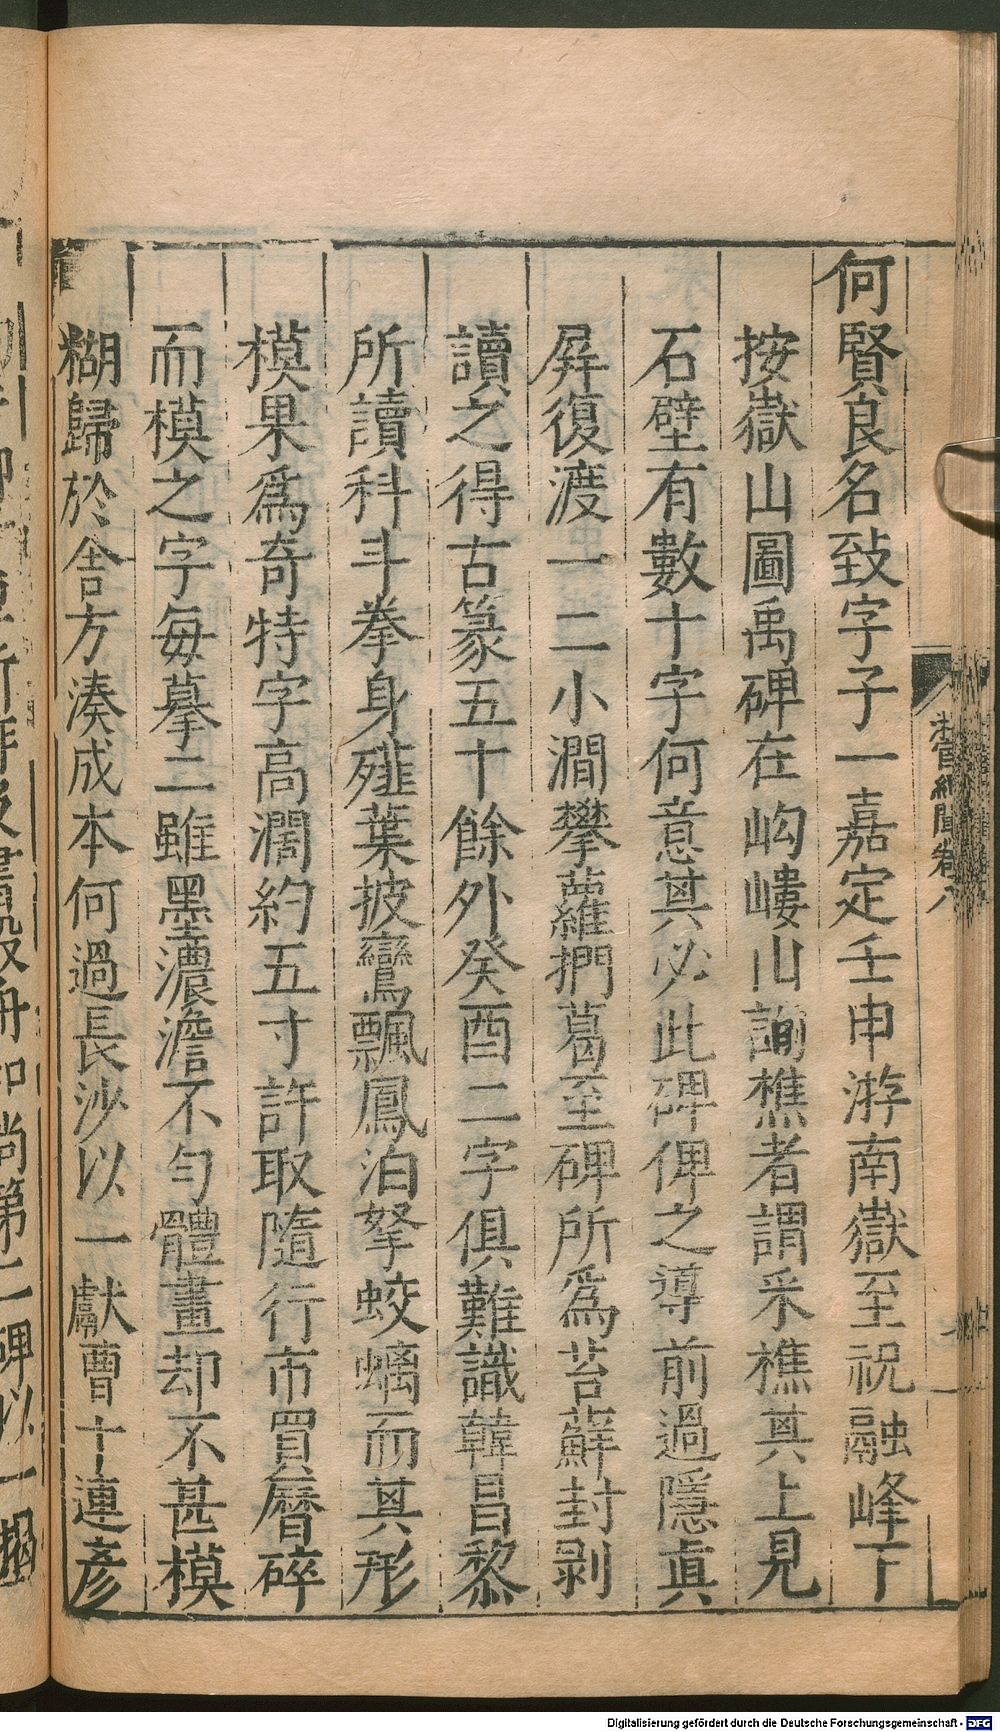 何賢良名致字子一嘉定壬申游南嶽至祝融峰下
按嶽山圖禹碑在岣嶁山詢樵者謂采樵其上見
石壁有數十字何意其必此碑俾之導前過隱真
屏復渡一二小澗攀蘿捫葛至碑所爲苔蘚封剥
讀之得古篆五十餘外癸酉二字俱難識韓昌黎
所讀科斗拳身薤葉披鸞飄鳳泊拏蛟螭而其形
模果爲奇特字高濶約五寸許取隨行市買曆碎
而模之字每摹二雖墨濃澹不勻體畫却不甚模
糊歸於舍方湊成本何過長沙以一獻曹十連彥
卷八
Digitalisierung gefördert durch die Deutsche Forschungsgemeinschaft - DFG